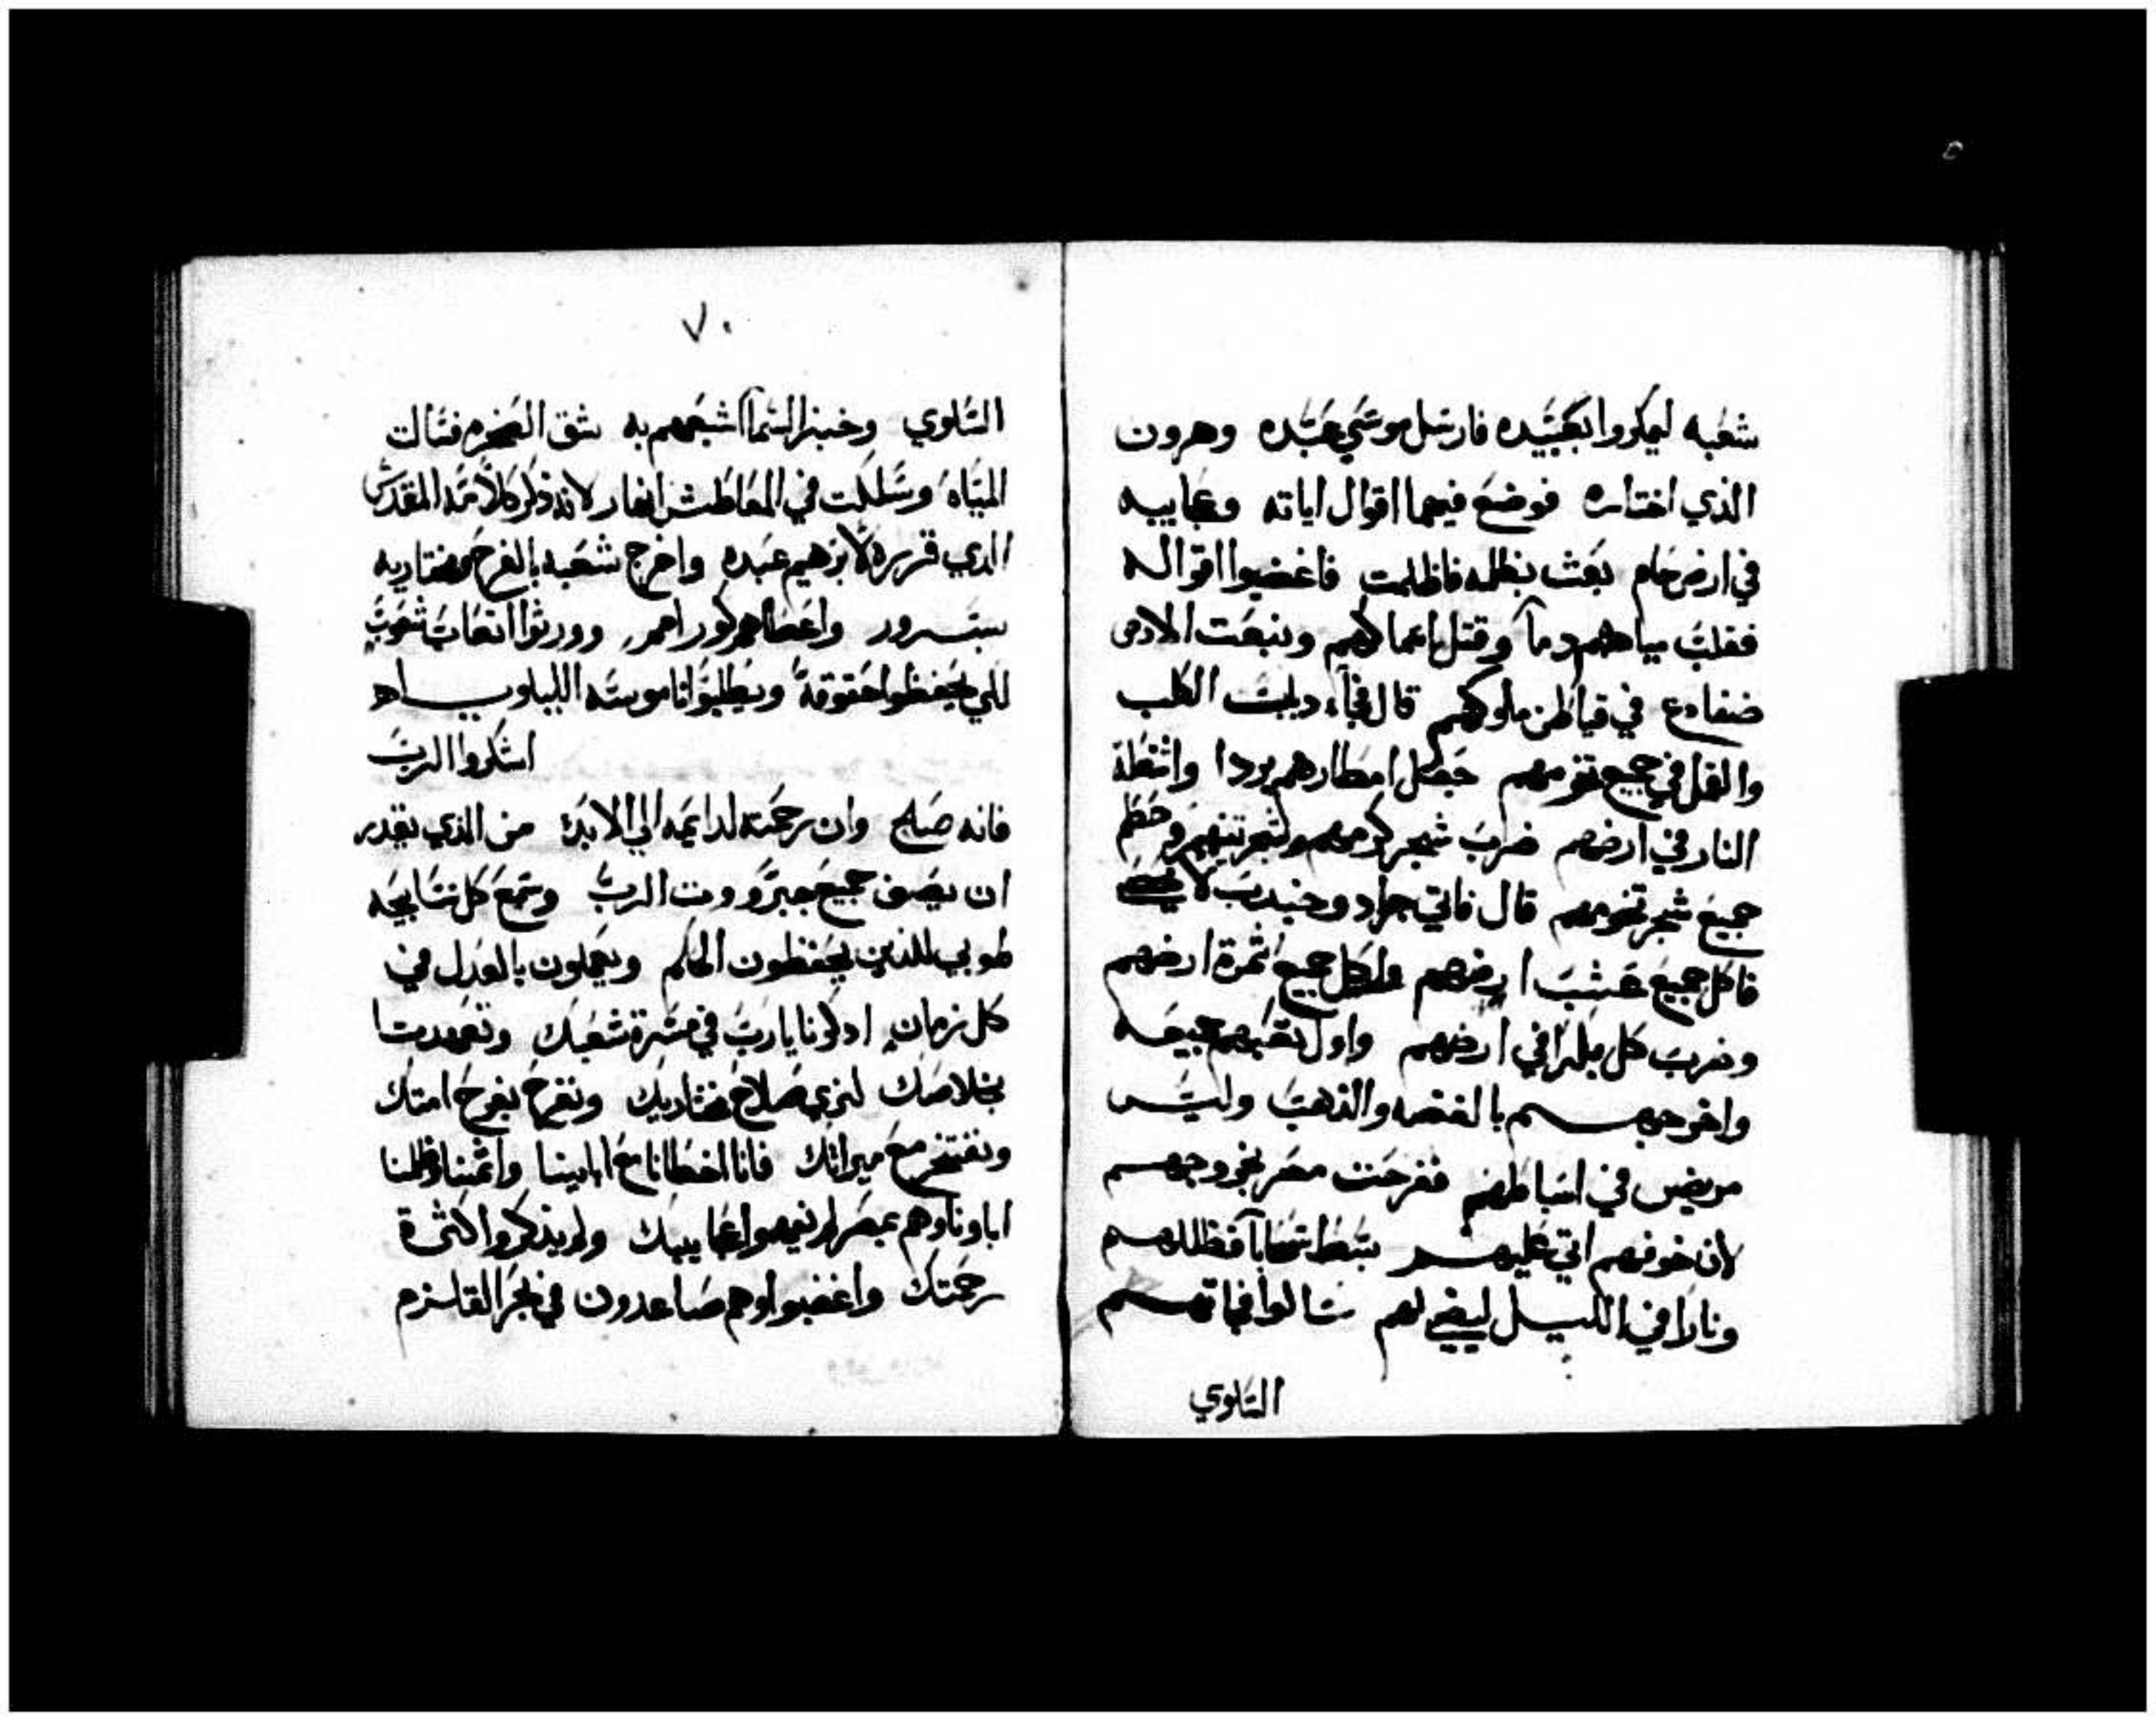 شعبه ليمكروا بعبيده فارسل موسي عبده وهرون
الذي اختاره فوضع فيهما اقوال اياته وعجاييبه
في ارض حام بعث بظلمه فاظلمت فاغضبوا اقواله
فقلب مياههم دماً وقتل اسماكهم ونبعت الارض
ضفادع في قياطن ملوكهم قال فجآء دباب الكلب
والقمل في جميع تخومهم جعل امطارهم بردا واشعلة
النار في ارضهم ضرب شجر كرمهم وشجر تينهم وحطم
جميع شجر تخومهم قال فاتي جراد وجندب لا يحصي
فاكل جميع عشب ارضهم واكل جميع اثمرة ارضهم
وضرب كل بكراً في ارضهم واول تعبهم جميعه
واخرجهم بالفضه والذهب وليس
مريض في اسباطهم ففرحت مصر بخروجهم
لان خوفهم اتي عليهم بسط سحاباً فظللهم
وناراً في الليل ليضي لهم سالوا فجاتهم
السلوي
٧٠
السلوي وخبز السما اشبعهم به شق الصخره فسالت
المياه وسلكت في المعاطش انهار لانه ذكر كلامه المقدس
الدي قرره لابرهيم عبده واخرج شعبه بالفرح ومختاريه
بسرور واعطاهم كور امم وورثوا اتعاب شعوب
لكي يحفظوا حقوقه ويطلبوا ناموسه الليلويا
اشكروا الرب
فانه صلح وان رحمته لدايمه الي الابد من الذي يقدر
ان يصف جميع جبروت الرب وسمع كل تسابيحه
طوبي للذين يحفظون الحكم ويعملون بالعدل في
كل زمان ادكرنا يا رب في مسرة شعبك وتعهدنا
بخلاصك لنري صلاح مختاريك ونفرح بفرح امتك
ونفتخر مع ميراتك فانا اخطانا مع ابايينا واثمنا وظلمنا
اباونا وهم بمصر لم يفهموا عجاييبك ولم يذكروا كثرة
رحمتك واغضبوا وهم صاعدون في بحر القلزم